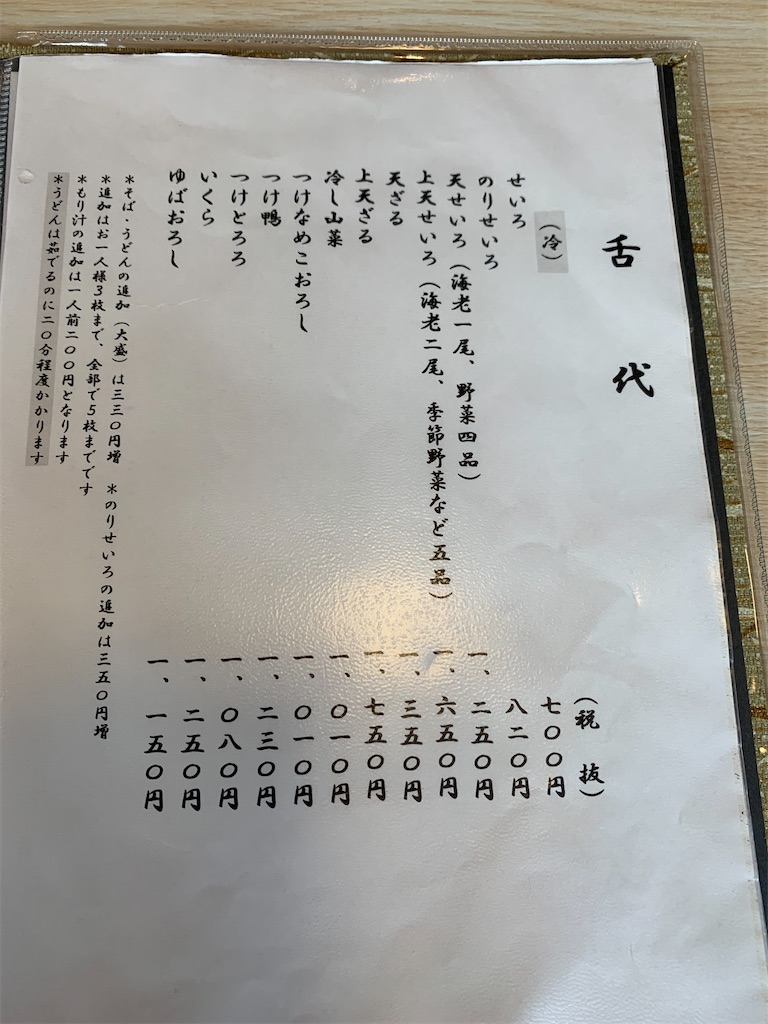 舌代
(冷) (税抜)
せいろ 七〇〇円
のりせいろ 八二〇円
天せいろ(海老一尾、野菜四品) 一、二五〇円
上天せいろ(海老二尾、季節野菜など五品) 一、六五〇円
天ざる 一、三五〇円
上天ざる 一、七五〇円
冷し山菜 一、〇一〇円
つけなめこおろし 一、〇一〇円
つけ鴨 一、二三〇円
つけとろろ 一、〇八〇円
いくら 一、二五〇円
ゆばおろし 一、一五〇円
*そば・うどんの追加(大盛)は三三〇円増 *のりせいろの追加は三五〇円増
*追加はお一人様3枚まで、全部で5枚までです
*もり汁の追加は一人前二〇〇円となります
*うどんは茹でるのに二〇分程度かかります